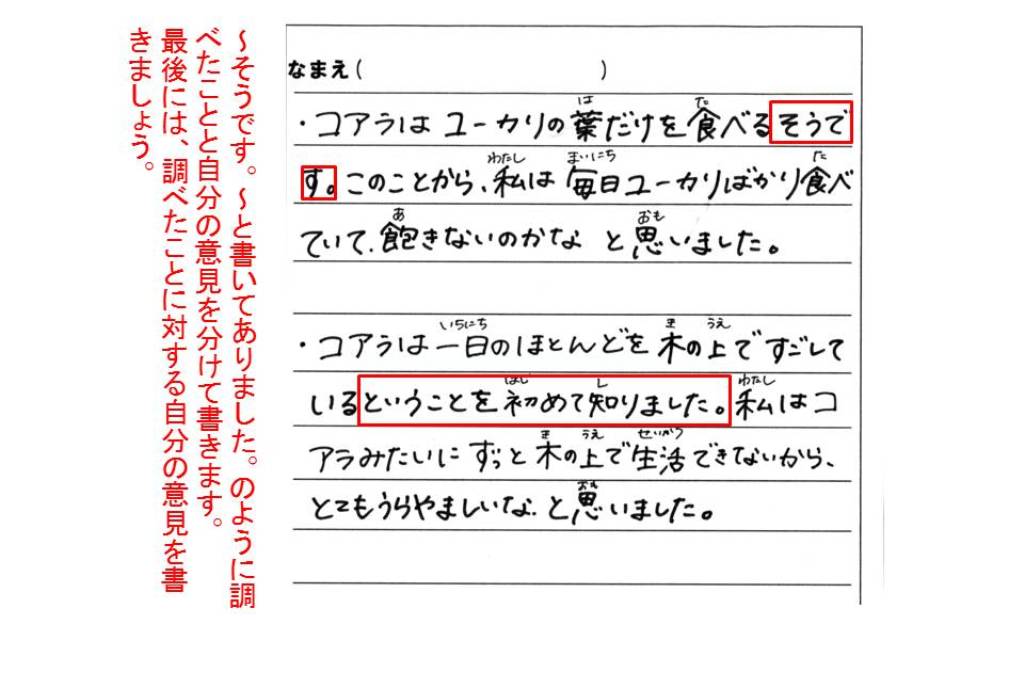 ～そうです。～と書いてありました。のように調
べたことと自分の意見を分けて書きます。
最後には、調べたことに対する自分の意見を書
きましょう。
なまえ（　　　　　　　　　　）
・コアラは ユーカリの葉だけを食べるそうで
す。このことから、私は 毎日ユーカリばかり食べ
ていて、飽きないのかな と思いました。
・コアラは一日のほとんどを 木の上で すごして
いるということを初めて知りました。私はコ
アラみたいに ずっと木の上で生活できないから、
とてもうらやましいな、と思いました。